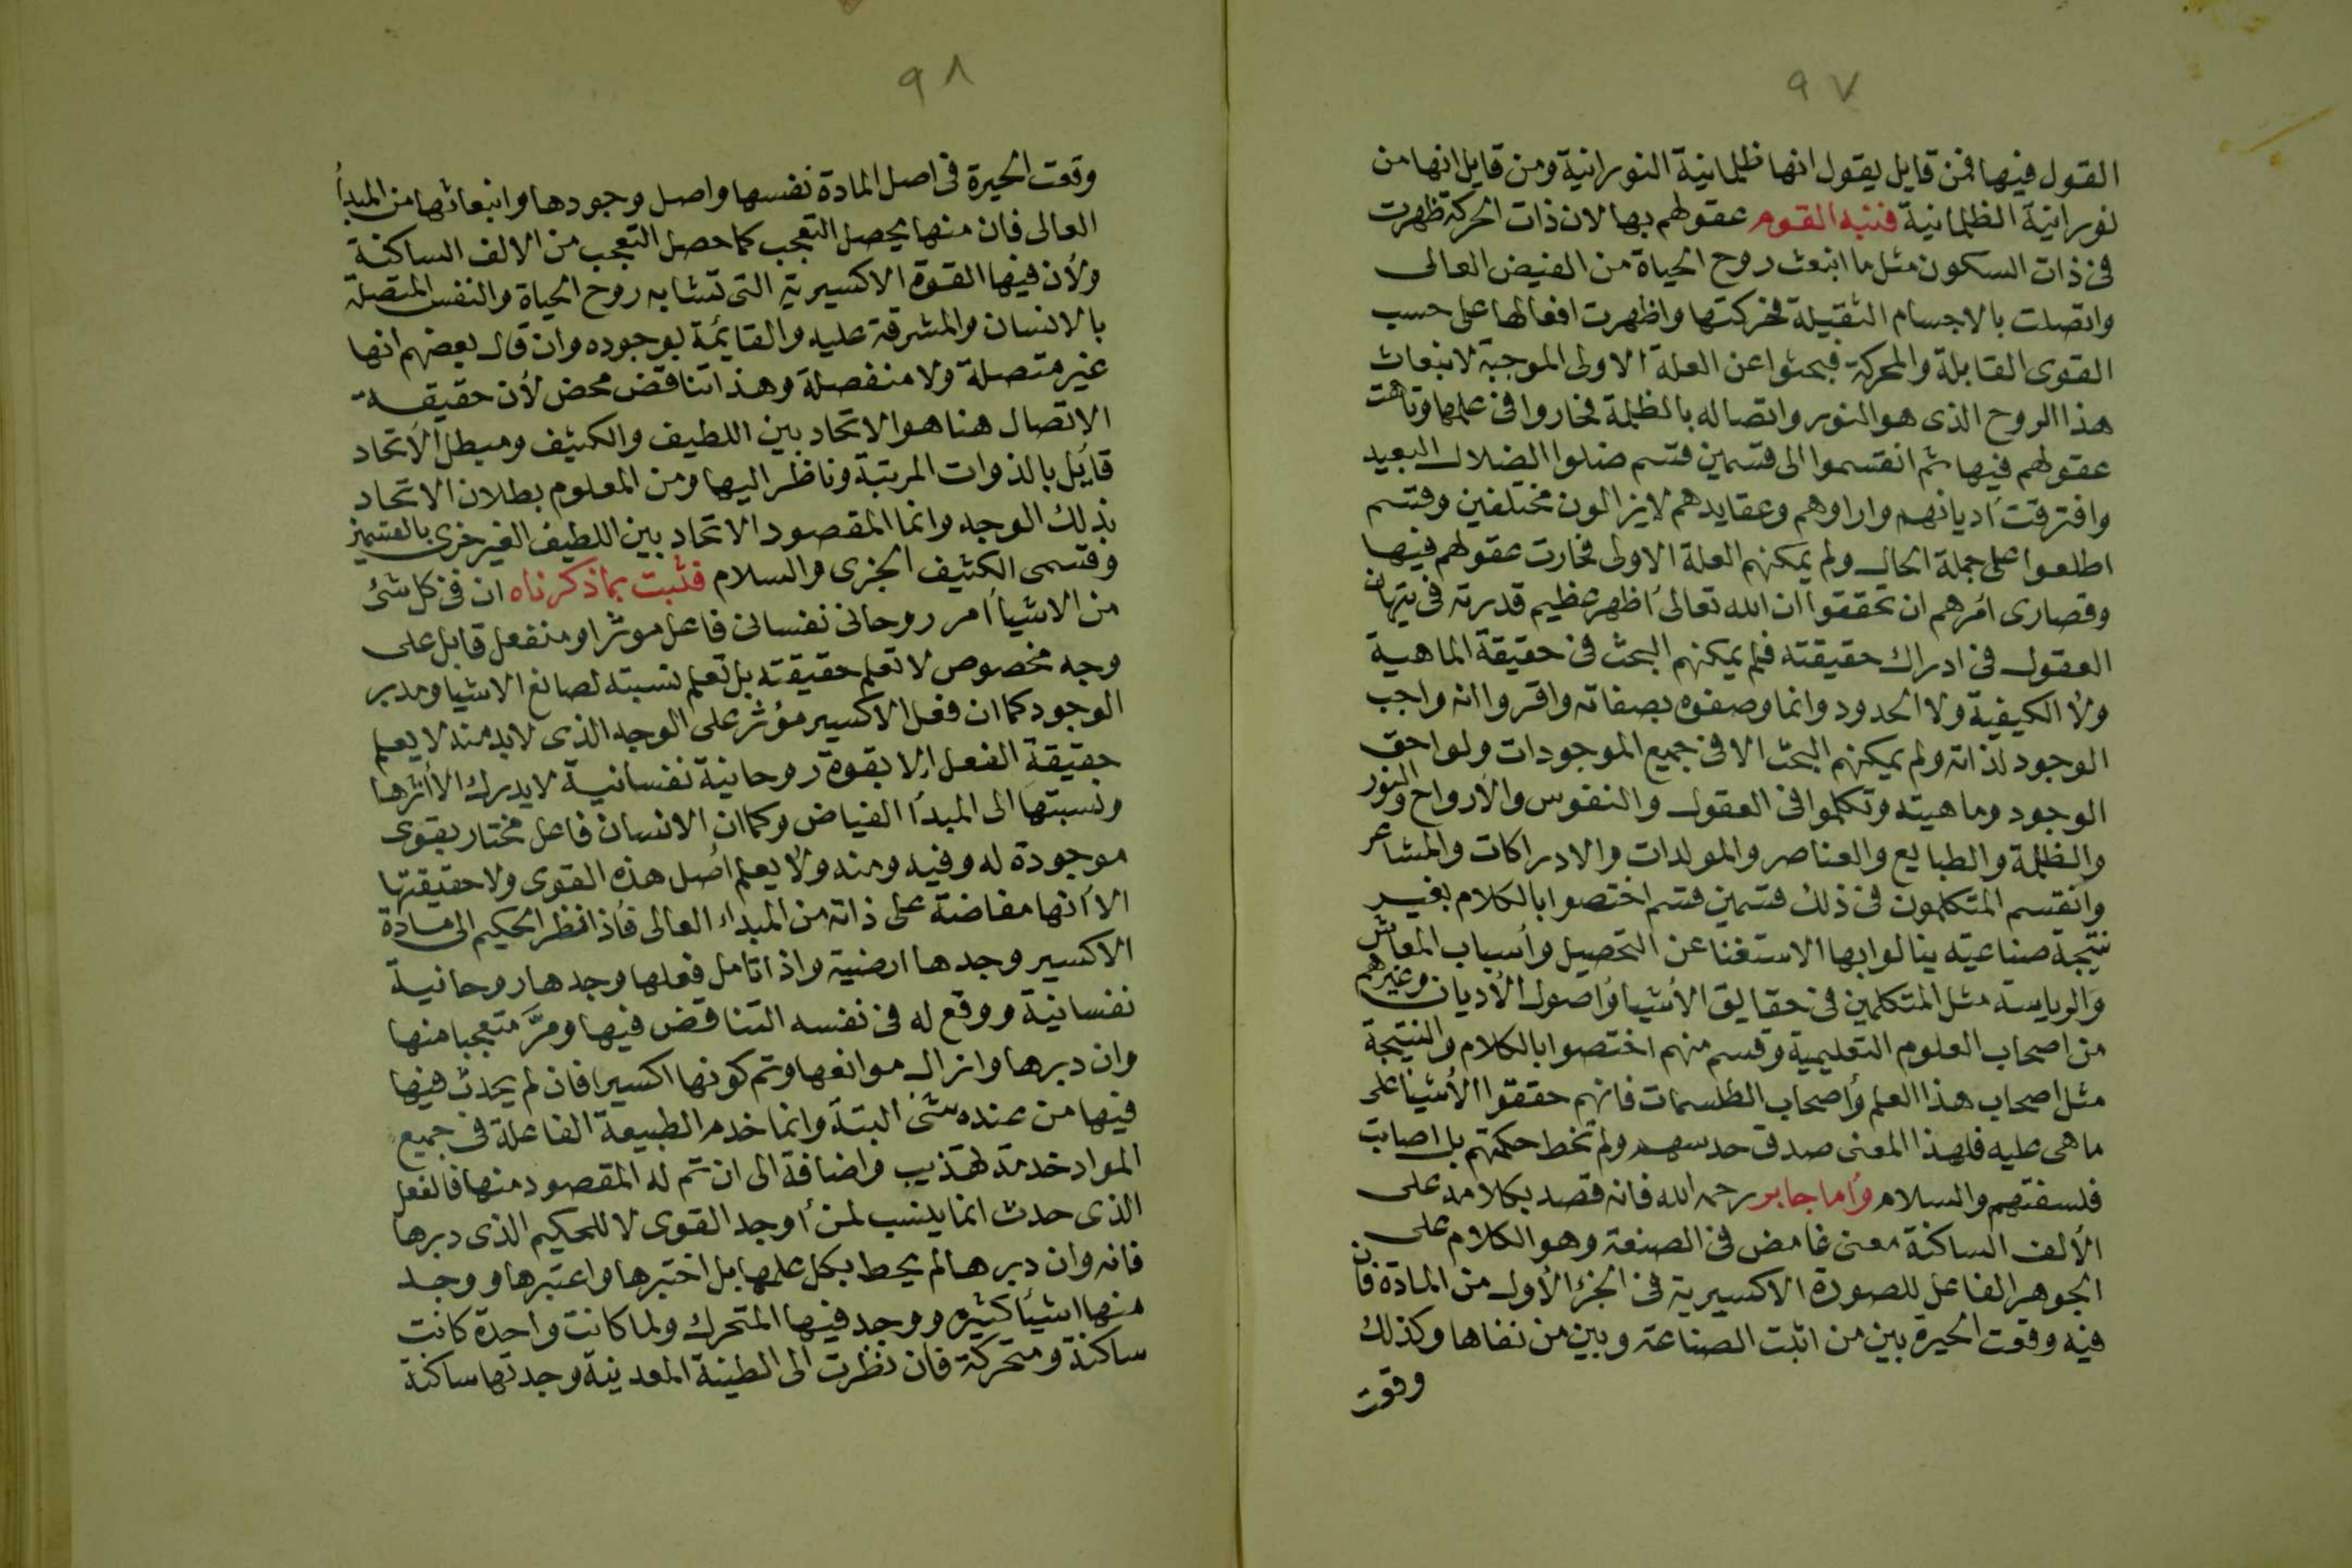 ٩٧
القول فيها فمن قايل يقول انها ظلمانية النورانية ومن قايل انها من
نورانية الظلمانية فتنبه القوم عقولهم بها لان ذات الحركة ظهرت
فى ذات السكون مثل ما انبعث روح الحياة من الفيض العالى
واتصلت بالاجسام الثقيلة فحركتها واظهرت افعالها على حسب
القوى القابلة والمحركة فبحثوا عن العلة الاولى الموجبة لانبعاث
هذا الروح الذى هو النور واتصاله بالظلمة فحاروا فى علمها وتاهت
عقولهم فيها ثم انقسموا الى قسمين قسم ضلوا الضلال البعيد
وافترقت أديانهم واراوهم وعقايدهم لايزالون مختلفين وقسم
اطلعوا على جملة الحال ولم يمكنهم العلة الاولى فحارت عقولهم فيها
وقصارى أمرهم ان تحققوا ان الله تعالى أظهر عظيم قدرته فى تيهان
العقول فى ادراك حقيقته فلم يمكنهم البحث فى حقيقة الماهية
ولا الكيفية ولا الحدود وانما وصفوه بصفاته واقروا انه واجب
الوجود لذاته ولم يمكنهم البحث الا فى جميع الموجودات ولواحق
الوجود وماهيته وتكلموا فى العقول والنفوس والأرواح والنور
والظلمة والطبايع والعناصر والمولدات والادراكات والمشاعر
وانقسم المتكلمون فى ذلك قسمين قسم اختصوا بالكلام بغير
نتيجة صناعيته ينالوا بها الاستغنا عن التحصيل وأسباب المعاش
والرياسة مثل المتكلمين فى حقايق الأشيا وأصول الأديان وغيرهم
من اصحاب العلوم التعليمية وقسم منهم اختصوا بالكلام والنتيجة
مثل اصحاب هذا العلم وأصحاب الطلسمات فانهم حققوا الأشيا على
ما هى عليه فلهذا المعنى صدق حدسهم ولم تخط حكمتهم بل اصابت
فلسفتهم والسلام وأما جابر رحمه الله فانه قصد بكلامه على
الألف الساكنة معنى غامض فى الصنعة وهو الكلام على
الجوهر الفاعل للصورة الاكسيرية فى الجزء الأول من المادة فان
فيه وقعت الحيرة بين من اثبت الصناعة وبين من نفاها وكذلك
وقعت
٩٨
وقعت الحيرة فى اصل المادة نفسها واصل وجودها وانبعاثها من المبدأ
العالى فان منها يحصل التعجب كما حصل التعجب من الالف الساكنة
ولأن فيها القوة الاكسيرية التى تتشابه روح الحياة والنفس المتصلة
بالانسان والمشرقة عليه والقايمة بوجوده وان قال بعضهم انها
غير متصلة ولا منفصلة وهذا تناقض محض لأن حقيقة
الاتصال هنا هو الاتحاد بين اللطيف والكثيف ومبطل الاتحاد
قايل بالذوات المرتبة وناظر اليها ومن المعلوم بطلان الاتحاد
بذلك الوجه وانما المقصود الاتحاد بين اللطيف الغير جزى بالقسمين
وقسمى الكثيف الجزى والسلام فثبت بما ذكرناه ان فى كل شئ
من الاشيا أمر روحانى نفسانى فاعل موثرا ومنفعل قابل على
وجه مخصوص لا تعلم حقيقته بل تعلم نسبته لصانع الاشيا ومدبر
الوجود كما ان فعل الاكسير مؤثر على الوجه الذى لابد منه لا يعلم
حقيقة الفعل الا بقوة روحانية نفسانية لا يدرك الا أثرها
ونسبتها الى المبدأ الفياض وكما ان الانسان فاعل مختار بقوى
موجودة له وفيه ومنه ولا يعلم أصل هذه القوى ولا حقيقتها
الا أنها مفاضة على ذاته من المبداء العالى فاذا نظر الحكيم الى مادة
الاكسير وجدها ارضية واذا تامل فعلها وجدها روحانية
نفسانية ووقع له فى نفسه التناقض فيها ومرَّ متعجبا منها
وان دبرها وازال موانعها وتم كونها اكسيرا فان لم يحدث فيها
فيها من عنده شئ البتة وانما خدم الطبيعة الفاعلة فى جميع
المواد خدمة تهذيب واضافة الى ان تم له المقصود منها فالفعل
الذى حدث انما ينسب لمن أوجد القوى لا للحكيم الذى دبرها
فانه وان دبرها لم يحط بكل علمها بل اختبرها واعتبرها ووجد
منها اشيأ كثيره ووجد فيها المتحرك ولما كانت واحدة كانت
ساكنة ومتحركة فان نظرت الى الطينة المعدنية وجدتها ساكنة